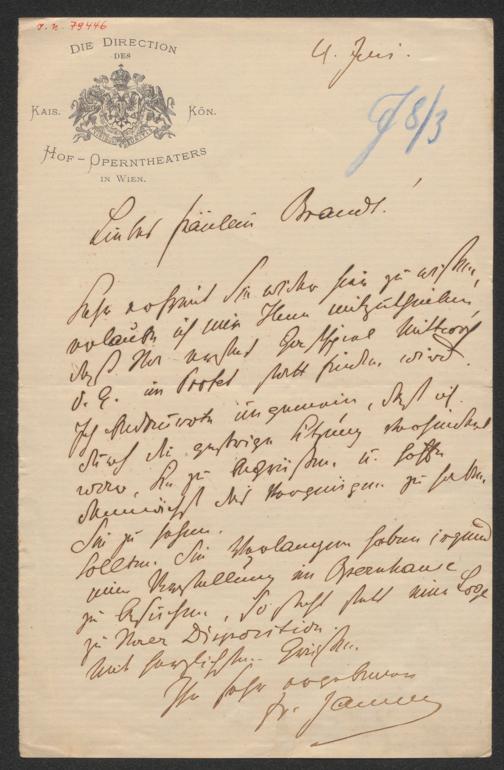 J. N. 79446
DIE DIRECTION
DES
KAIS. KÖN.
HOF-OPERNTHEATERS
IN WIEN.
4. Juni.
J 8/3
Liebes Fräulein Brandt!
Sehr erfreut Sie wieder hier zu wissen,
erlaube ich mir Ihnen mitzutheilen,
daß Ihr erstes Gastspiel Mittwoch
d. 9. im Profet statt finden wird.
Ich bedauerte ungemein, daß ich
durch die gestrige Sitzung verhindert
war, Sie zu begrüßen u. hoffe
demnächst das Vergnügen zu haben,
Sie zu sehen.
Sollten Sie Verlangen haben irgend
eine Vorstellung im Opernhause
zu besuchen, so steht stets eine Loge
zu Ihrer Disposition.
Mit herzlichsten Grüßen
Ihr sehr ergebener
Fr. Jauner